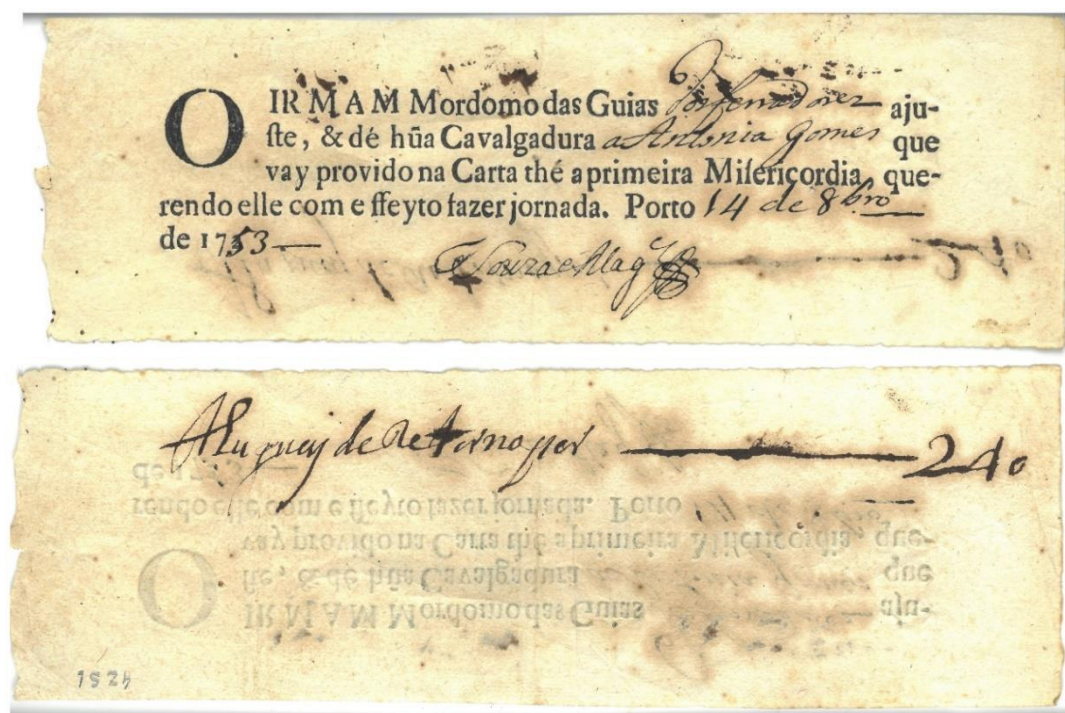 O IRMAM Mordomo das Guias aju-
ste, & dé hũa Cavalgadura a Antonia Gomes que
vay provido na Carta thé a primeira Misericordia, que-
rendo elle com effeyto fazer jornada. Porto 14 de 8bro
de 1753
Souza e Mag
Aluguey de Retorno por 240
1524